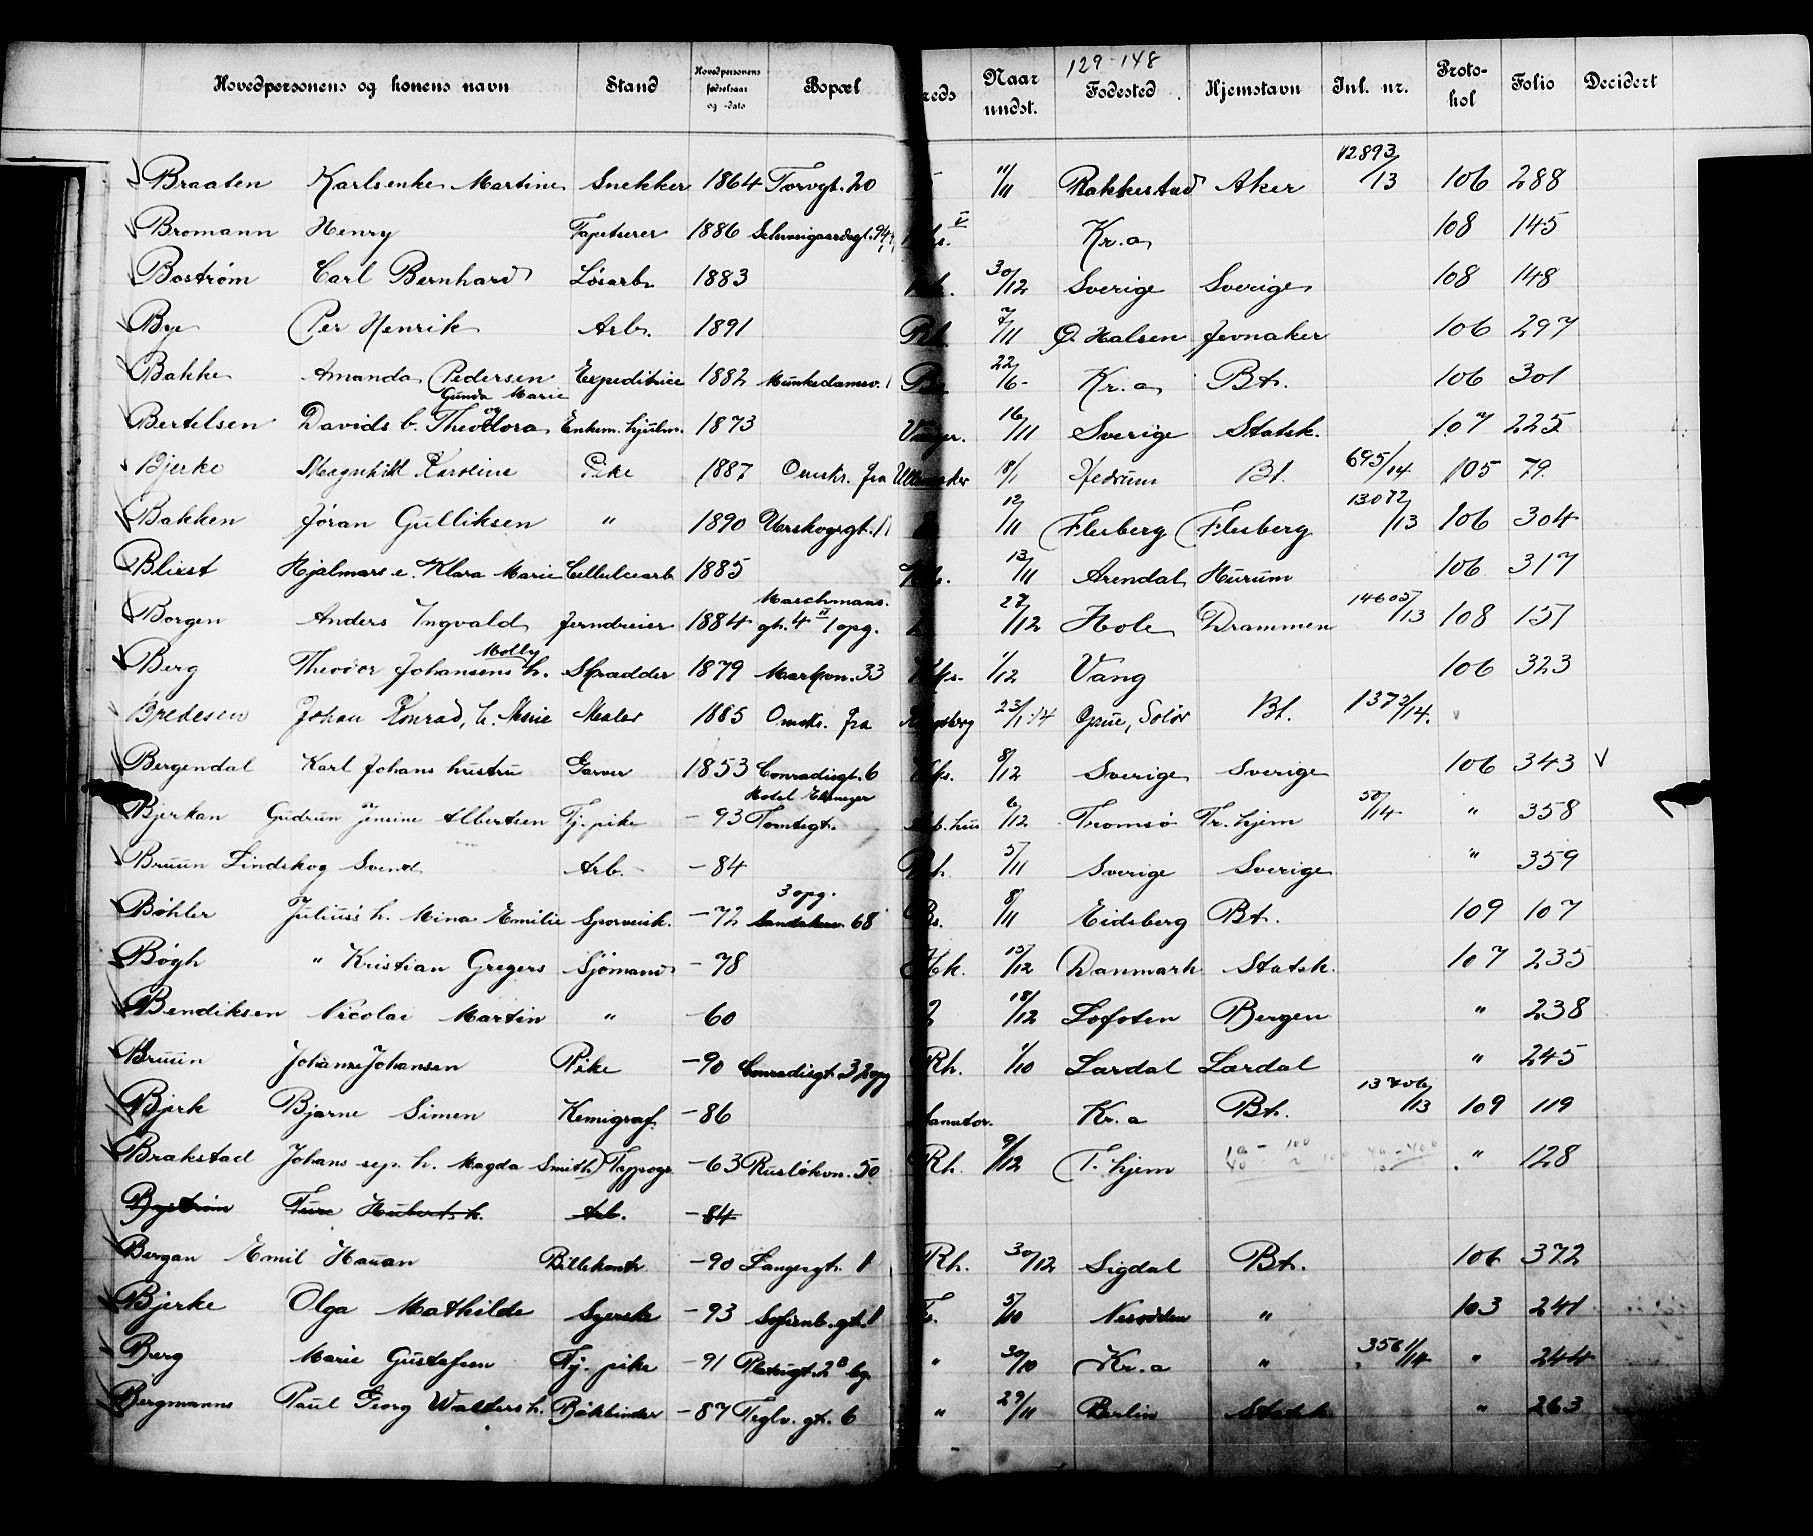 129-148
Hovedpersonens og konens navn Stand Hovedpersonens fødselsaar og -dato Bopæl reds Naar undst. Fødested Hjemstavn Jnl. nr. Proto-kol Folio Decidert
Braaten Karlsenke Martine Snekker 1864 Torvgt. 20 11/11 Rakkestad Aker 12893/13 106 288
Bromann Henry Tapetserer 1886 Schweigaardsgt. 94 Kr.a 108 145
Boström Carl Bernhard Løsarb. 1883 30/12 Sverige Sverige 108 148
Bye Per Henrik Arb. 1891 7/11 Ø. Halsen Jevnaker 106 297
Bakke Amanda Pedersen Expeditrice 1882 Munkedamsv. 22/6 Kr.a Bt. 106 301
Bertelsen Davids b. Gunda Marie og Theodora Enkem. hjulm. 1873 16/11 Sverige Statsk. 107 225
Bjerke Magnhild Karoline Pike 1887 Omskr. fra Ullensaker 8/1 Hedrum Bt. 695/14 105 79
Bakken Jøran Gulliksen " 1890 12/11 Flesberg Flesberg 13072/13 106 304
Bliest Hjalmars e. Klara Marie Cellulosearb 1885 13/11 Arendal Hurum 106 317
Borgen Anders Ingvald Jerndreier 1884 Marschmanns. gt. 4 II 1 opg. 27/12 Hole Drammen 14605/13 108 157
Berg Theodor Johansens h. Molly Skrædder 1879 Markvn. 33 1/12 Vang 106 323
Bredesen Johan Konrad, h. Marie Maler 1885 Omskr. fra Kongsberg 23/1 14 Grue, Solør Bt. 1373/14. v
Bergendal Karl Johans hustru Garver 1853 Conradisgt. 6 8/12 Sverige Sverige 106 343 V
Bjerkan Gudrun Jensine Albertsen Tj. pike - 93 Hotel Ebenezer Tomtegt. Arb. hus 6/12 Tromsø Tr. hjem 50/14 " 358
Bruun Lindskog Svend Arb. - 84 5/11 Sverige Sverige " 359
Bøhler Julius's h. Mina Emilie Sporveisk. - 72 3 opg. Sandakerv. 68 8/11 Eidsberg Bt. 109 107
Bøgh " Kristian Gregers Sjømand - 78 15/12 Danmark Statsk. 107 235
Bendiksen Nicolai Martin " - 60 18/12 Lofoten Bergen " 238
Bruun Johanne Johansen Pike - 90 Conradisgt. 3, 2 opg Rh. 1/10 Lardal Lardal " 245
Bjerk Bjarne Simen Kemigraf - 86 Sanator. Kr.a Bt. 13706/13 109 119
Brakstad Johans sep. h. Magda Smith) - 63 Ruseløkvn. 50 Rh. 9/12 T. hjem " 128
Bystrøm Ture Huberts h. Arb. - 84
Bergan Emil Hauan Billetkontr. - 90 Langesgt. 1 Rh. 30/12 Sigdal Bt. 106 372
Bjerke Olga Mathilde Syerske - 93 Sofienb. gt. 1 5/10 Nesodden " 103 241
Berg Marie Gustafsen Tj. pike - 91 " 30/10 Kr.a " 3561/14 " 244
Bergmanns Paul Georg Walters h. Bokbinder - 87 Teglv. gt. 6 " 29/11 Berlin Statsk " 263